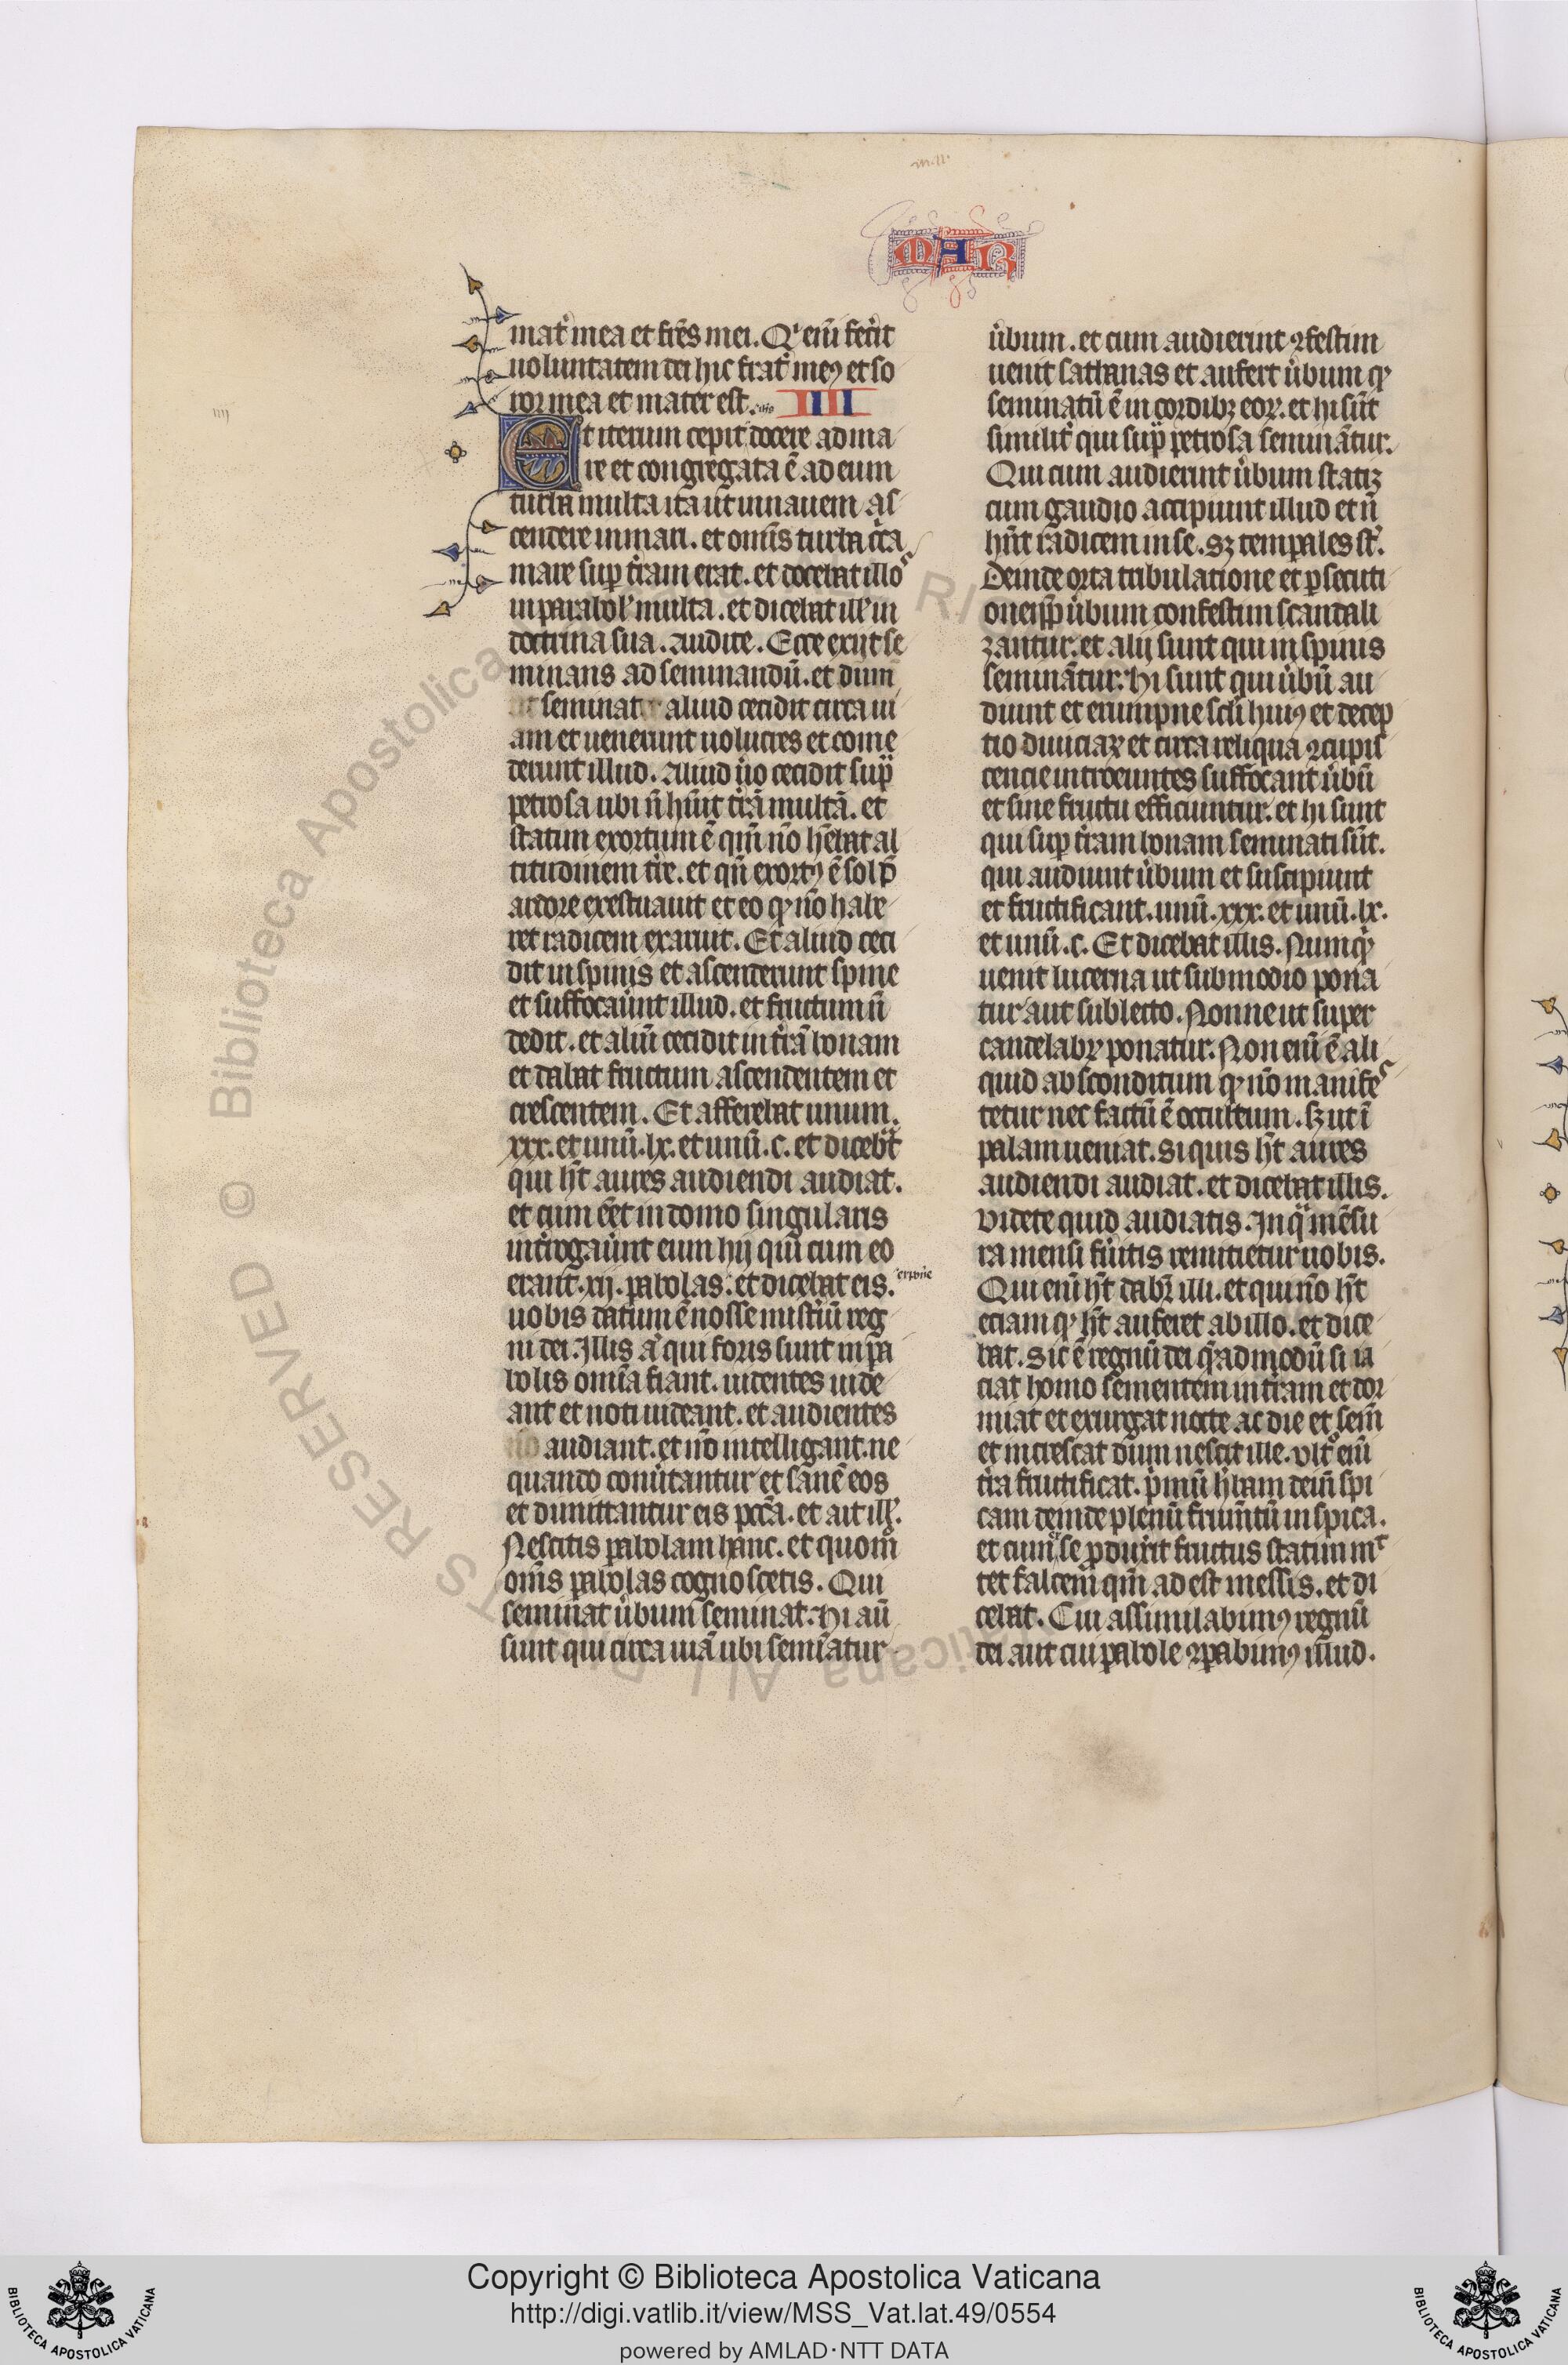 MAR
mat͛ mea et fr̄es mei. Qͥ eni̅ fec͛it
uoluntatem dei hic frat͛ meꝰ et so
ror mea et mater est. IIII
Et iterum cepit docere ad ma
re et congregata ē ad eum
turba multa ita ut in nauem as
cendere in mari. et om̄is turba c͛ca
mare sup t͛ram erat. et docebat illos
in parabol̕ multa. et dicebat ill̕ in
doctrina sua. Audite. Ecce exijt se
minans ad seminandū. et dum
seminat aliud cecidit circa ui
am et uenerunt uolucres et come
derunt illud. Aliud u͛o cecidit sup
petrosa ubi n̄ hūit t͛rā multā. et
statim exortum ē qm̄ nō hēbat al
titudinem t͛re. et qn̄ exortꝰ ē sol p̄
ardore exestuauit et eo qꝫ nō habe
ret radicem exaruit. Et aliud ceci
dit in spinis et ascenderunt spine
et suffocau͛unt illud. et fructum n̄
dedit. et aliū cecidit in t͛rā bonam
et dabat fructum ascendentem et
crescentem. Et afferebat unum.
xxx. et unū. lx. et unū. c. et dicebᵃt
qui hēt aures audiendi audiat.
et cum eēt in domo singularis
int͛rogau͛unt eum hij qui cum eo
erant. xij. pabolas. et dicebat eis.
uobis datum ē nosse mist͛iū reg
ni dei. Illis aͥ qui foris sunt in pa
bolis omīa fiant. uidentes uide
ant et non uideant. et audientes
audiant. et nō intelligant. ne
quando conu͛tantur et sanē eos
et dimittantur eis pcc̄a. et ait ill̕.
Nescitis pabolam hanc. et quomͦ
om̄s pabolas cognoscetis. Qui
seminat u͛bum seminat. Hi aū
sunt qui circa uiā ubi semīatur
u͛bum. et cum audierint ꝯfestim
uenit sathanas et aufert u͛bum qꝫ
seminatū ē in cordibꝫ eoꝝ. et hi sūt
similit͛ qui sup petrosa seminātur.
Qui cum audierint u͛bum statiꝫ
cum gaudio accipiunt illud et n̄
hn̄t radicem in se. sꝫ temporales st̄.
Deinde orta tribulatione et ꝑsecuti
one ꝓp u͛bum confestim scandali
zantur. et alij sunt qui in spinis
seminātur. Hi sunt qui u͛bū au
diunt et erumpne scl̄i huiꝰ et decep
tio diuiciaꝝ et circa reliqua ꝯcupis
cencie introeuntes suffocant u͛bū
et sine fructu efficiuntur. et hi sunt
qui sup t͛ram bonam seminati sūt.
qui audiunt u͛bum et suscipiunt
et fructificant. unū. xxx. et unū. lx.
et unū. c. Et dicebat illis. Numqͥ
uenit lucerna ut sub modio pona
tur aut sub lecto. Nonne ut super
candelabꝝ ponatur. Non eni̅ ē ali
quid absconditum qꝫ nō manifes
tetur nec factū ē occultum. sꝫ ut ī
palam ueniat. Si quis hēt aures
audiendi audiat. et dicebat illis.
Videte quid audiatis. In qᵃ mēsu
ra mensi fu͛itis remitietur uobis.
Qui eni̅ hēt dabr̄ illi. et qui nō hēt
eciam qꝫ hēt auferet ab illo. et dice
bat. Sic ē regnū dei qᵉadmodū si ia
ciat homo sementem in t͛ram et dor
miat et exurgat nocte ac die et sem̄
et increscat dum nescit ille. Vltͦ eni̅
t͛ra fructificat. p͛mū h͛bam dein̄ spi
cam deinde plenū frumn̄tū in spica.
et cum se ꝓdux͛it fructus statim mit
tet falcem qm̄ adest messis. et di
cebat. Cui assimilabimꝰ regnū
dei aut cui pabole ꝯpabimꝰ illud.
© Biblioteca Apostolica Vaticana ALL RIGHTS RESERVED
Copyright © Biblioteca Apostolica Vaticana
http://digi.vatlib.it/view/MSS_Vat.lat.49/0554
powered by AMLAD·NTT DATA
BIBLIOTECA APOSTOLICA VATICANA
BIBLIOTECA APOSTOLICA VATICANA